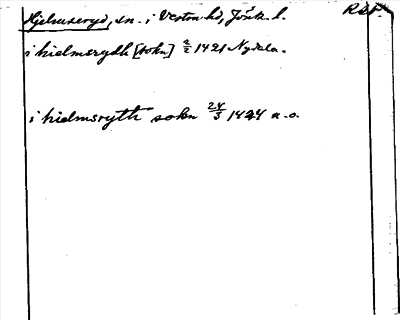 Hjelmseryd, sn. i Vestra hd, Jönk. l. RAP.
i hielmsrydh [sokn] 2/2 1421 Nydala.
i hielmsryth sokn 24/3 1424 a. o.